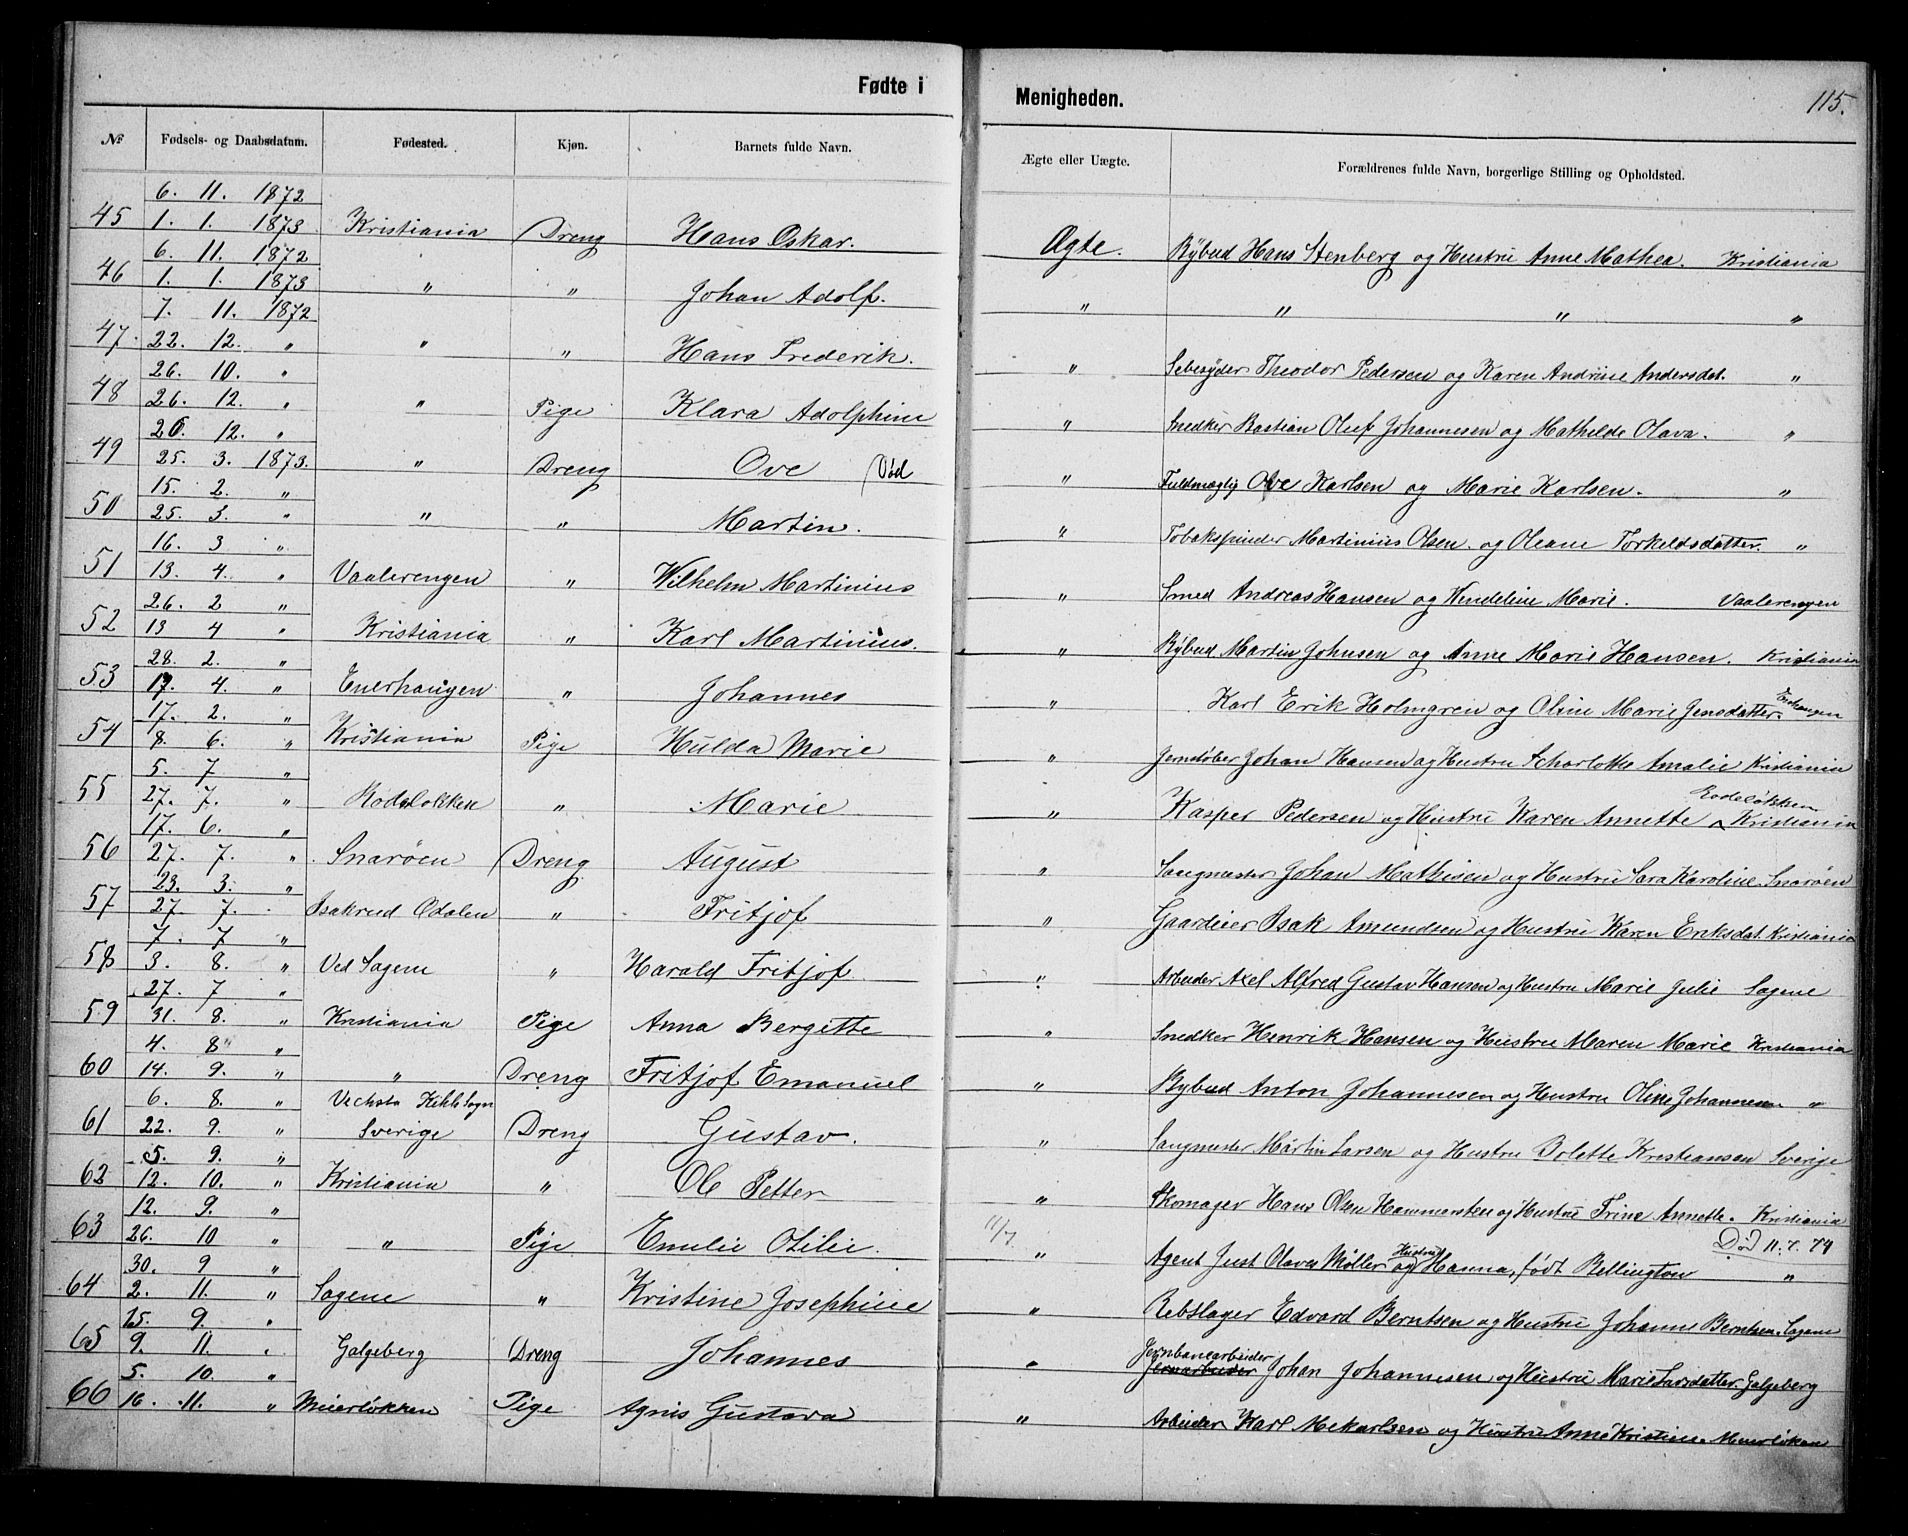 Fødte i Menigheden. 115.
№ Fødsels- og Daabsdatum. Fødested. Kjøn. Barnets fulde Navn. Ægte eller Uægte. Forældrenes fulde Navn, borgerlige Stilling og Opholdsted.
6. 11. 1872
45 1. 1. 1873 Kristiania Dreng Hans Oskar. Ægte. Bybud Hans Stenberg og Hustru Anne Mathea. Kristiania
6. 11. 1872
46 1. 1. 1873 " " Johan Adolf. " " " "
7. 11. 1872
47 22. 12. " " " Hans Frederik. " Theodor Pedersen og Karen Andrine Andersdat. "
26. 10. "
48 26. 12. " " Pige Klara Adolphine " Snedker Bastian Oluf Johannesen og Mathelde Olava. "
26. 12. "
49 25. 3. 1873. " Dreng Ove (Død " Fuldmægtig Ove Karlsen og Marie Karlsen. "
15. 2. "
50 25. 3. " " " Martin. " Tobakspinder Martinius Olsen og Oleane Torkeldsdatter. "
16. 3 "
51 13. 4. " Vaalerengen " Wilhelm Martinius " Smed Andreas Hansen og Wendeline Marie. Vaalerengen
26. 2 "
52 13 4 " Kristiania " Karl Martinius. " Bybud Martin Johnsen og Anne Marie Hansen. Kristiania
28. 2. "
53 17. 4. " Enerhaugen " Johannes " Karl Erik Holmgren og Oline Marie Jensdatter. Enerhaugen
17. 2. "
54 8. 6. " Kristiania Pige Hulda Marie " Jernstøber Johan Hansen og Hustru Scharlotte Amalie Kristiania
5. 7 "
55 27. 7. " Rodeløkken " Marie " Kasper Pedersen og Hustru Karen Annette Rodeløkken Kristiania
17. 6. "
56 27. 7. " Snarøen Dreng August " Sangmester Johan Mathisen og Hustru Sara Karoline. Snarøen
23. 3. "
57 27. 7. Isakrud Odalen " Fritjof " Gaardeier Isak Amundsen og Hustru Karen Eriksdat. Kristiania
7. 7 "
58 3. 8. " Ved Sagene " Harald Fritjof " Arbeider Axel Alfred Gustav Hansen og Hustru Marie Julie Sagene
27. 7 "
59 31. 8. " Kristiania Pige Anna Bergitte " Snedker Henrik Hansen og Hustru Maren Marie Kristiania
4. 8 "
60 14. 9. " " Dreng Fritjof Emanuel " Bybud Anton Johannesen og Hustru Oline Johannesen. "
6. 8. " Sogn
61 22. 9. " Sverige Dreng Gustav. " Sangmester Martin Larsen og Hustru Bolette Kristiansen Sverige
5. 9. "
62 12. 10. " Kristiania " Ole Petter " Skomager Hans Olsen Hammersten og Hustru Trine Annette. Kristiania
12. 9. " 11/7. Død 11. 7. 74
63 26. 10 " " Pige Emilie Otilie. " Agent Just Olaves Møller og Hustru Hanna, født Bellington "
30. 9 "
64 2. 11. " Sagene " Kristine Josephine " Rebslager Edvard Berntsen og Hustru Johanne Berntsen. Sagene
15. 9. "
65 9. 11. " Galgeberg Dreng Johannes " Jernbanearbeider Johan Johannesen og Hustru Marie Larsdatter. Galgeberg
5. 10. "
66 16. 11. " Meierløkken Pige Agnis Gustava " Arbeider Karl Mekarlsen og Hustru Anne Kristine. Meierløkken